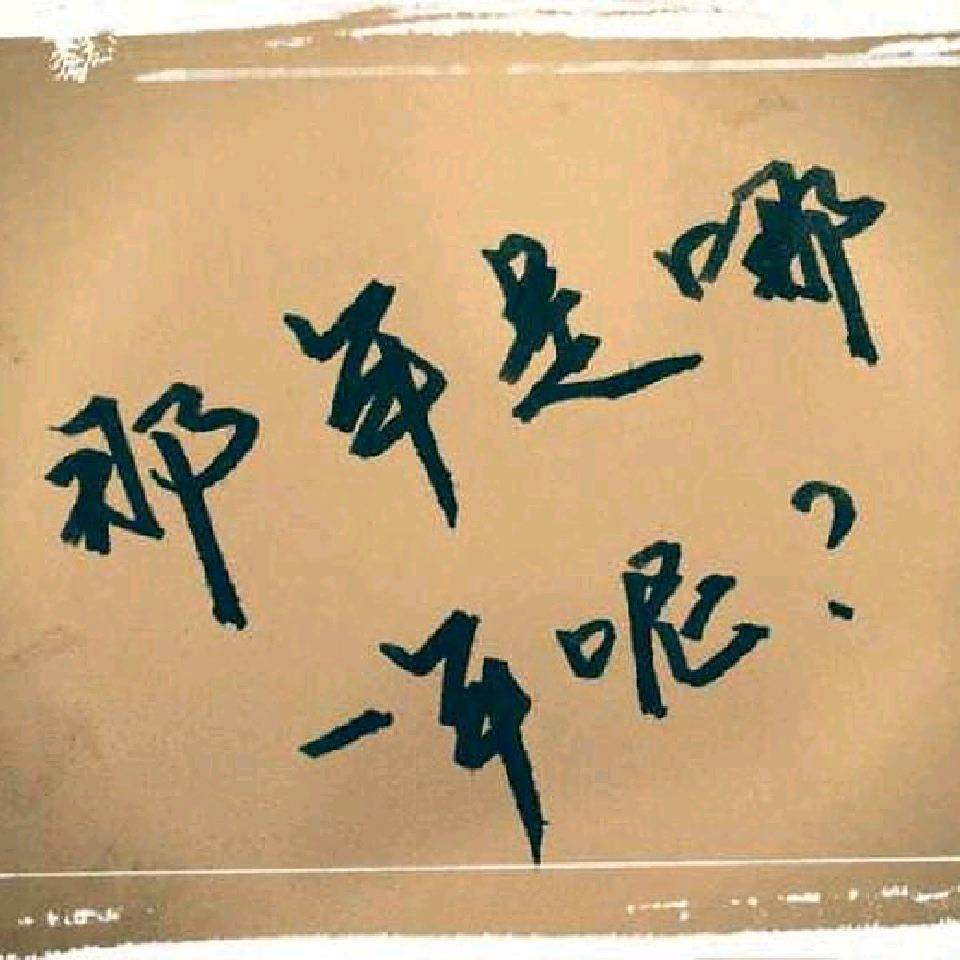 那年是哪
一年呢?